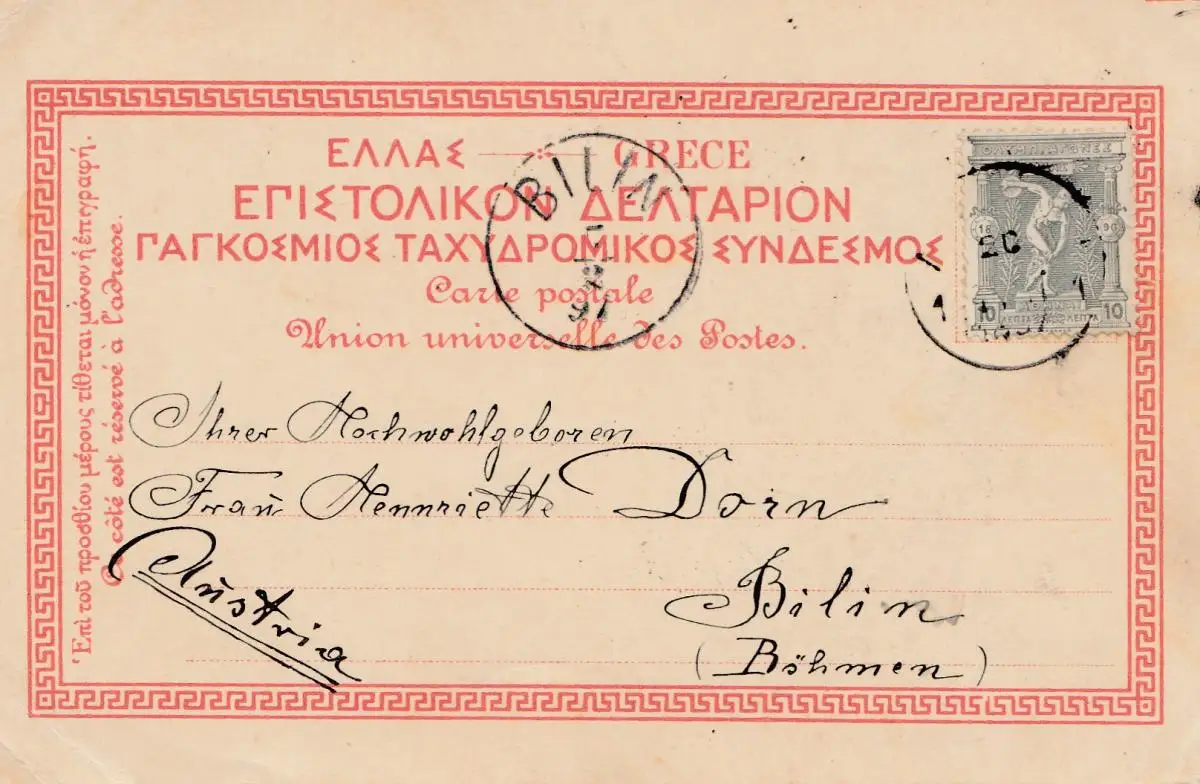 ΕΛΛΑΣ — GRECE
ΕΠΙΣΤΟΛΙΚΟΝ ΔΕΛΤΑΡΙΟΝ
ΠΑΓΚΟΣΜΙΟΣ ΤΑΧΥΔΡΟΜΙΚΟΣ ΣΥΝΔΕΣΜΟΣ
Carte postale
Union universelle des Postes.
Ἐπὶ τοῦ προσθίου μέρους τίθεται μόνον ἡ ἐπιγραφή.
Ce côté est réservé à l'adresse.
BILIN
97
18 96
10 10
Ihrer Hochwohlgeboren
Frau Hennriette Dorn
Bilin
(Böhmen)
Austria